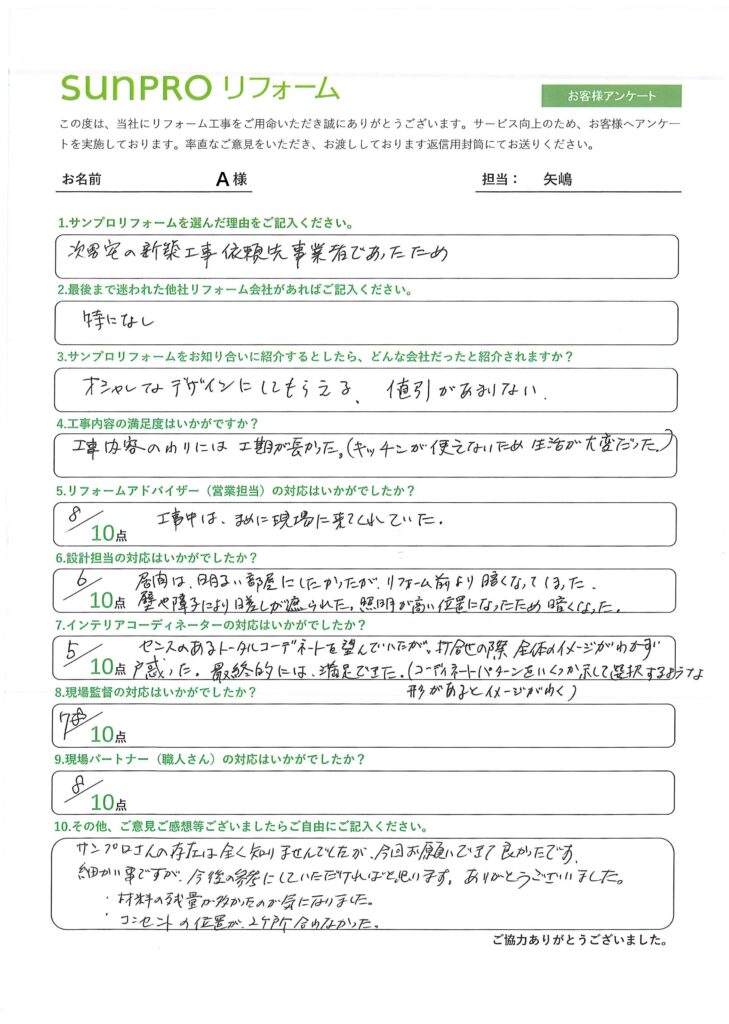 sunPRO リフォーム
お客様アンケート
この度は、当社にリフォーム工事をご用命いただき誠にありがとうございます。サービス向上のため、お客様へアンケー
トを実施しております。率直なご意見をいただき、お渡ししております返信用封筒にてお送りください。
お名前 A 様 担当： 矢嶋
1.サンプロリフォームを選んだ理由をご記入ください。
次男宅の新築工事依頼先事業者であったため
2.最後まで迷われた他社リフォーム会社があればご記入ください。
特になし
3.サンプロリフォームをお知り合いに紹介するとしたら、どんな会社だったと紹介されますか？
オシャレなデザインにしてもらえる、 値引があまりない．
4.工事内容の満足度はいかがですか？
工事内容のわりには工期が長かった。(キッチンが使えないため生活が大変だった。)
5.リフォームアドバイザー（営業担当）の対応はいかがでしたか？
8/10点 工事中は、まめに現場に来てくれていた．
6.設計担当の対応はいかがでしたか？
6/10点 居間は、明るい部屋にしたかったが、リフォーム前より暗くなってしまった．
壁や障子により日差しが遮られた。照明が高い位置になったため暗くなった。
7.インテリアコーディネーターの対応はいかがでしたか？
5/10点 センスのあるトータルコーデネートを望んでいたが、打合せの際全体のイメージがわかず
戸惑った。最終的には、満足できた。(コーディネートパターンをいくつか示して選択するような
形があるとイメージがわく)
8.現場監督の対応はいかがでしたか？
10点
9.現場パートナー（職人さん）の対応はいかがでしたか？
8/10点
10.その他、ご意見ご感想等ございましたらご自由にご記入ください。
サンプロさんの存在は全く知りませんでしたが、今回お願いできて良かったです．
細かい事ですが、今後の参考にしていただければと思います。ありがとうございました。
・材料の残量が多かったのが気になりました。
・コンセントの位置が、2ケ所合わなかった。
ご協力ありがとうございました。